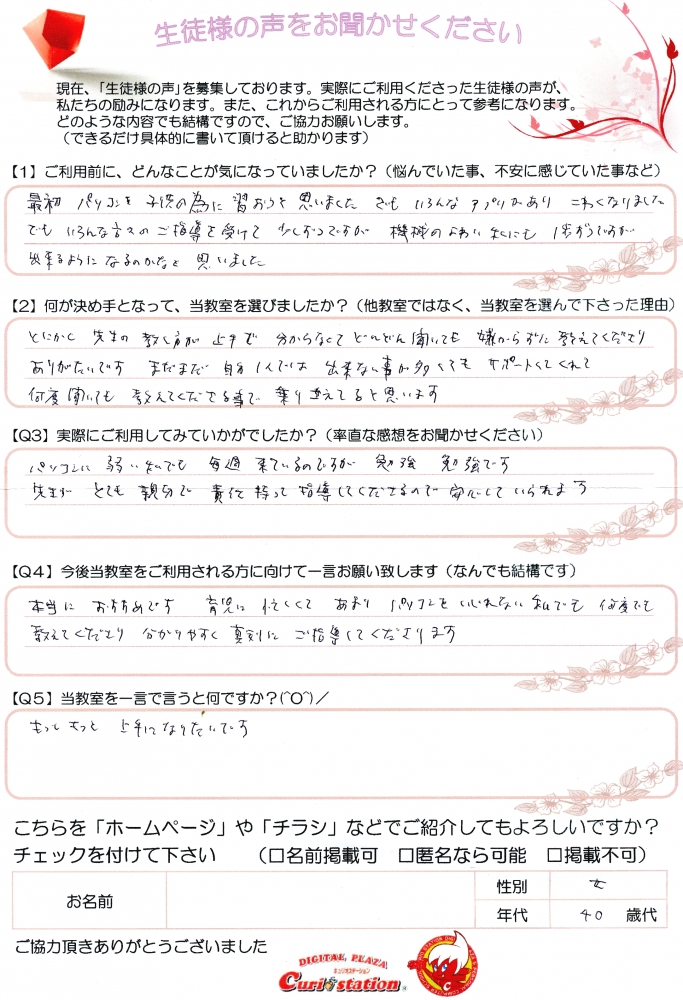 生徒様の声をお聞かせください
現在、「生徒様の声」を募集しております。実際にご利用くださった生徒様の声が、
私たちの励みになります。また、これからご利用される方にとって参考になります。
どのような内容でも結構ですので、ご協力お願いします。
（できるだけ具体的に書いて頂けると助かります）
【1】ご利用前に、どんなことが気になっていましたか？（悩んでいた事、不安に感じていた事など）
最初 パソコンを 子供の為に 習おうと 思いました でも いろんな アプリがあり こわくなりました
でも いろんな ご指導を 受けて 少しずつですが 機械の よわい 私にも 1歩ずつですが
出来るように なるのかなと 思いました
【2】何が決め手となって、当教室を選びましたか？（他教室ではなく、当教室を選んで下さった理由）
とにかく 先生の 教え方が 上手で 分からなくて どんどん 聞いても 嫌がらずに 教えてくださり
ありがたいです まだまだ 自分1人では 出来ない事が多くても サポートしてくれて
何度 聞いても 教えてくださる事で 乗り越えてると 思います
【Q3】実際にご利用してみていかがでしたか？（率直な感想をお聞かせください）
パソコンに 弱い 私でも 毎週 来ているのですが 勉強 勉強です
先生が とても 親切で 責任 持って 指導してくださるので 安心して いられます
【Q4】今後当教室をご利用される方に向けて一言お願い致します（なんでも結構です）
本当に おすすめです 育児に 忙しくて あまり パソコンを いじれない 私でも 何度でも
教えてくださり 分かりやすく 真剣に ご指導してくださります
【Q5】当教室を一言で言うと何ですか？(^O^)／
もっともっと 上手に なりたいです
こちらを「ホームページ」や「チラシ」などでご紹介してもよろしいですか？
チェックを付けて下さい （□名前掲載可 □匿名なら可能 □掲載不可）
お名前
性別 女
年代 40 歳代
ご協力頂きありがとうございました
DIGITAL PLAZA
キュリオステーション
Curio station